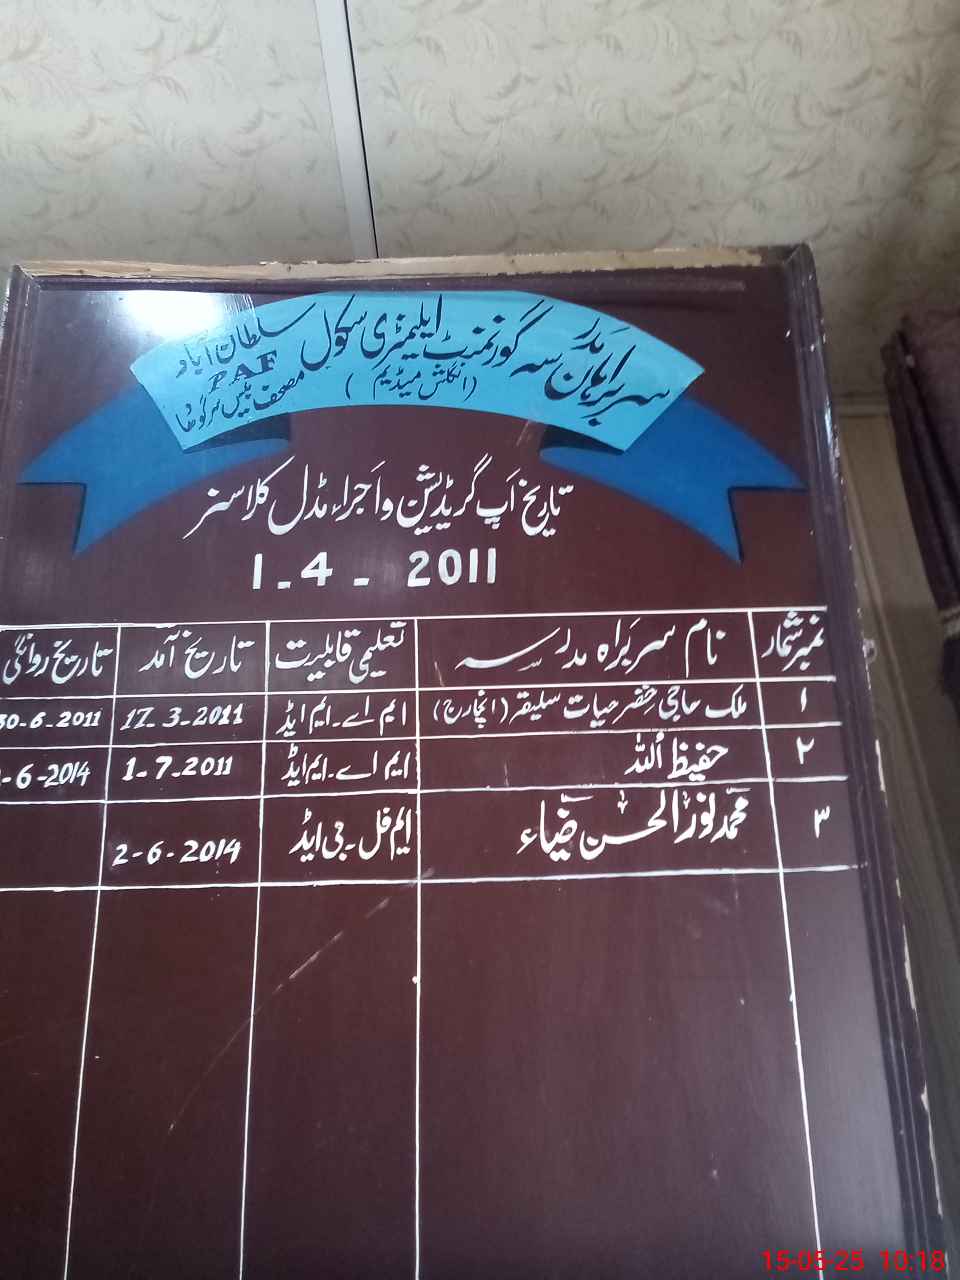 سربراہان مدرسہ گورنمنٹ ایلیمنٹری سکول سلطان آباد
(انگلش میڈیم)
PAF مصحف بیس سرگودھا
تاریخ اَپ گریڈیشن و اَجراء مڈل کلاسز
1-4-2011
نمبر شمار نام سربراہ مدرسہ تعلیمی قابلیت تاریخ آمد تاریخ روانگی
۱ ملک حاجی خضر حیات سلیقہ (انچارج) ایم اے۔ایم ایڈ 17-3-2011 30-6-2011
۲ حفیظ اللہ ایم اے۔ایم ایڈ 1-7-2011 -6-2014
۳ محمد نور الحسن ضیاء ایم فل۔بی ایڈ 2-6-2014
15-05-25 10:18